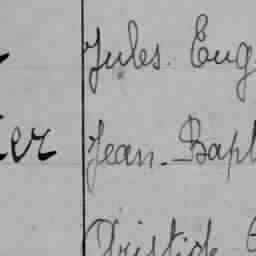 Jules. Eug
er Jean-Bapt
Aristide